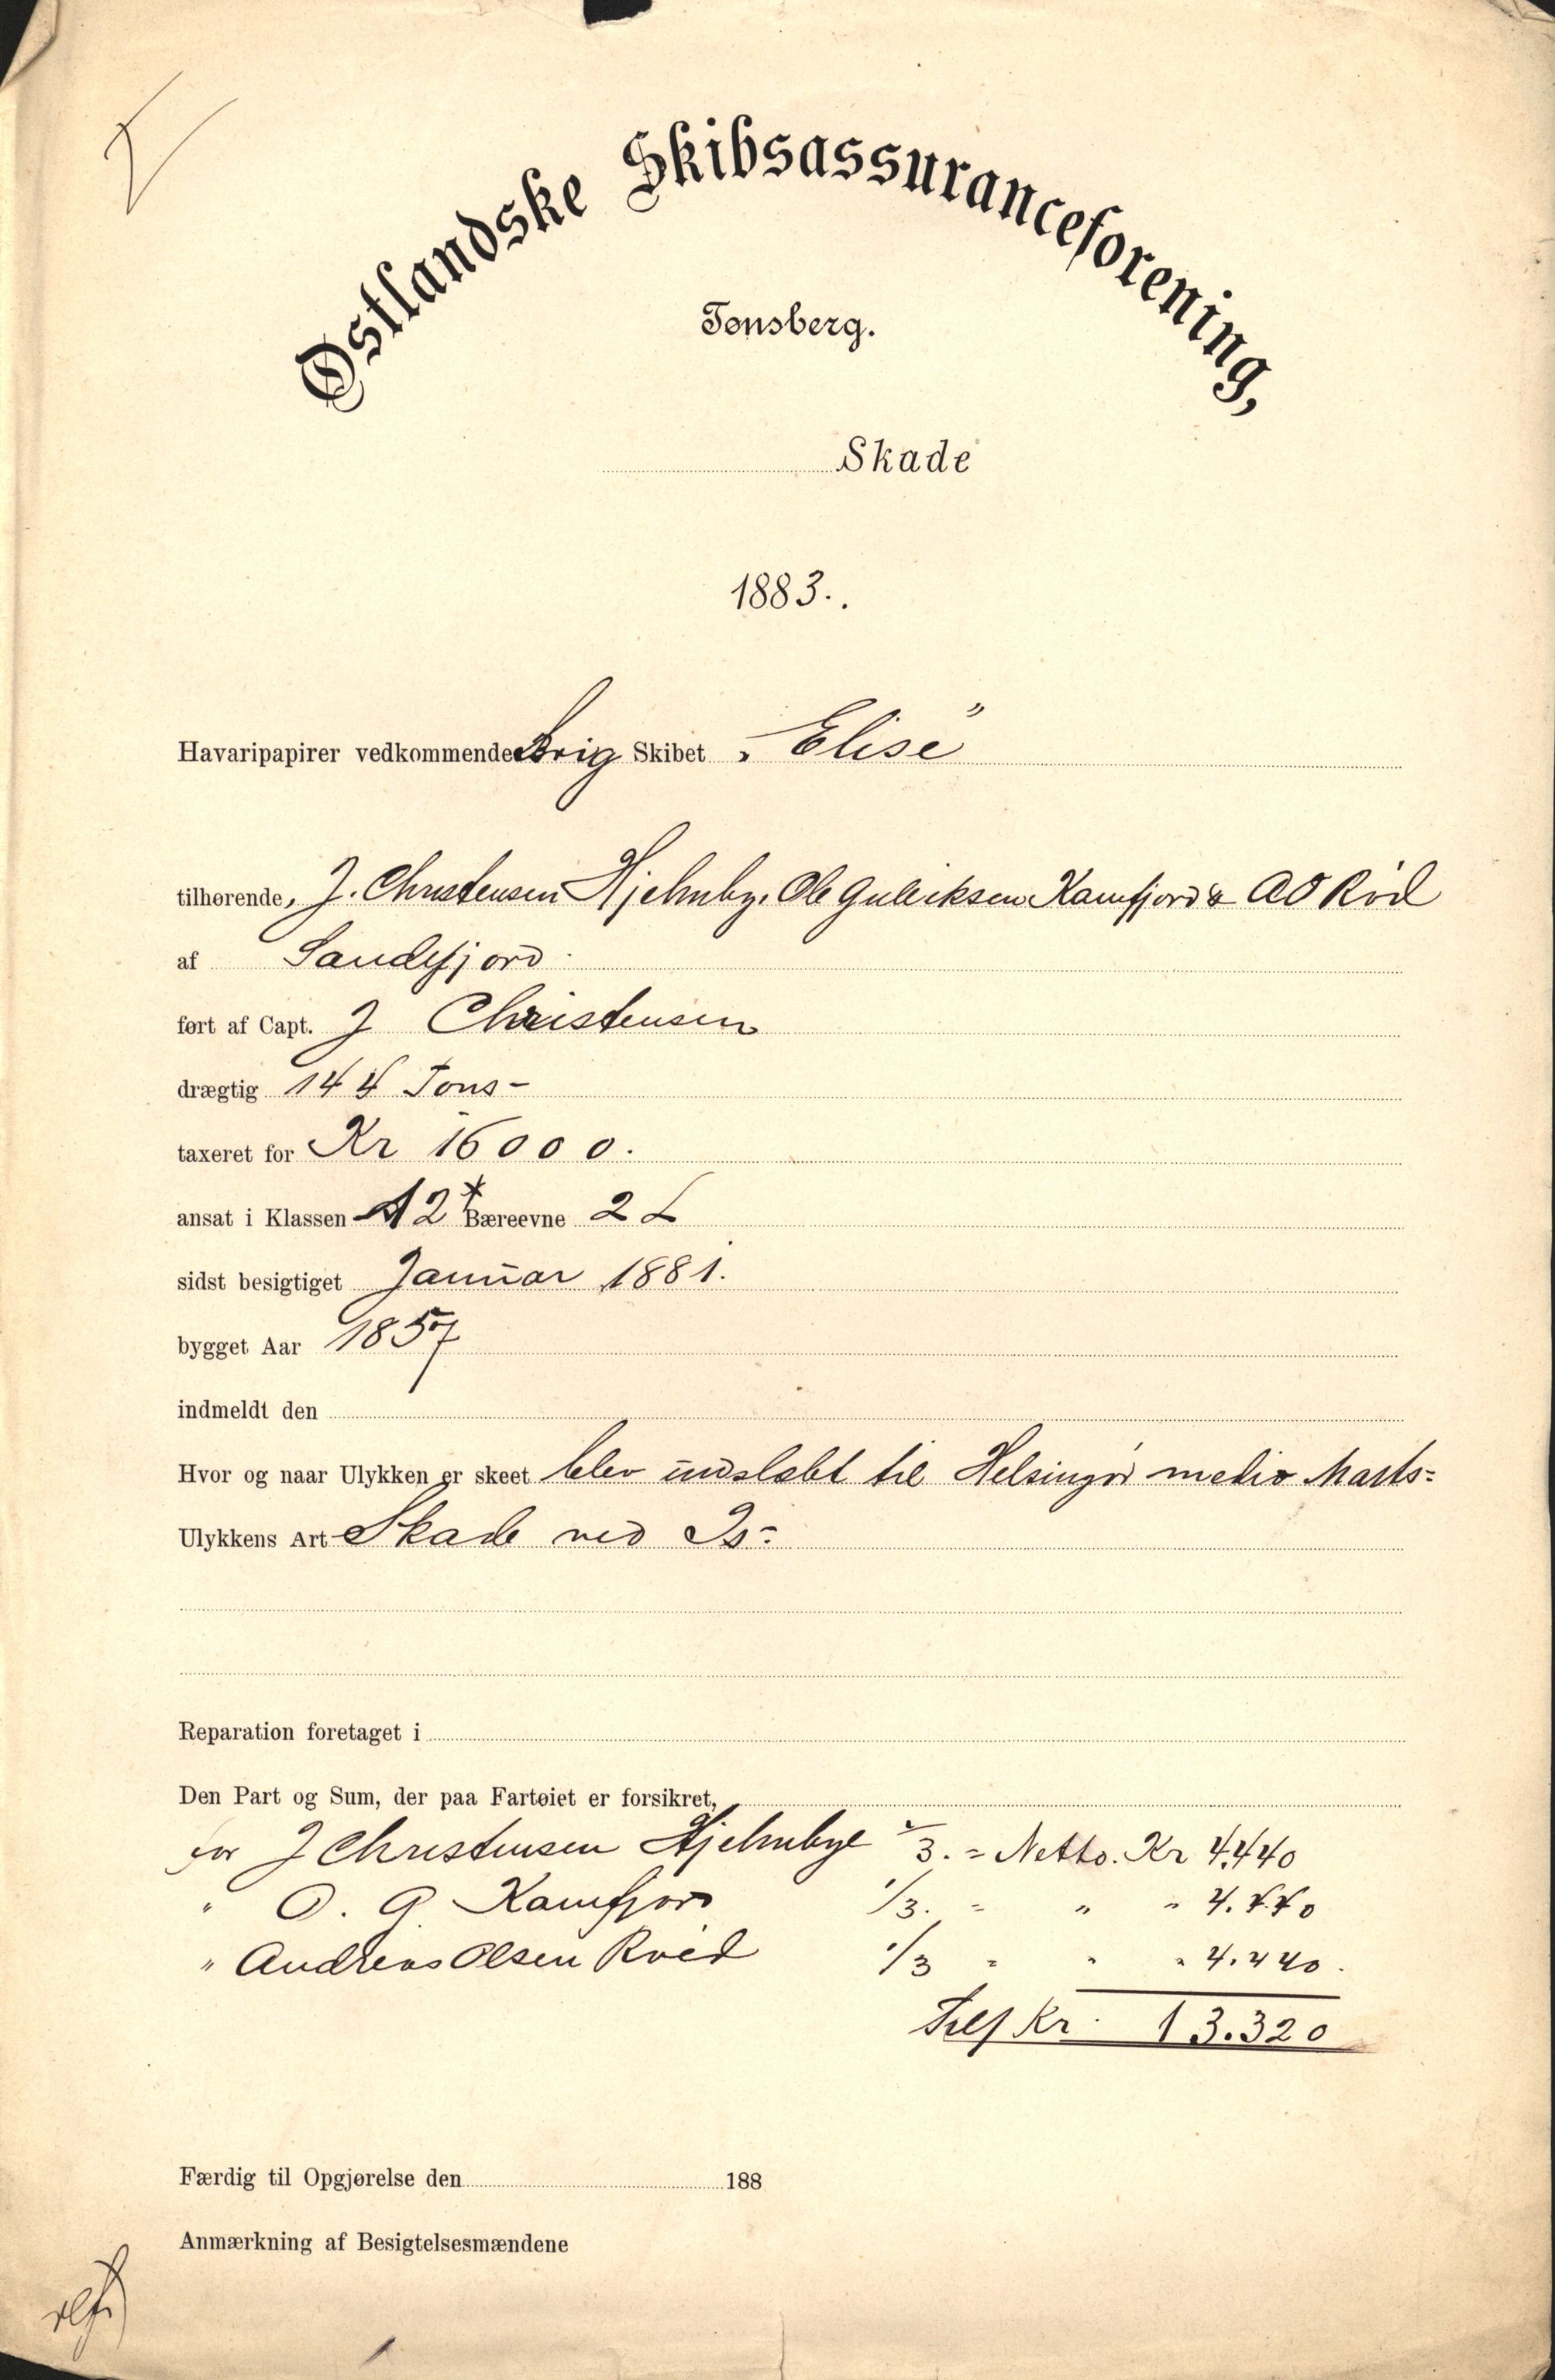 Østlandske Skibsassuranceforening,
Tønsberg.
Skade
1883.
Havaripapirer vedkommende Brig Skibet „Elise"
tilhørende, J. Christensen Hjelmby. Ole Gulleiksen Kamfjord & AO Röd
af Sandefjord
ført af Capt. J Christensen
drægtig 144 Tons-
taxeret for Kr 16000.
ansat i Klassen A2* Bæreevne 2 L
sidst besigtiget Januar 1881.
bygget Aar 1857
indmeldt den
Hvor og naar Ulykken er skeet blev indslæbt til Helsingør medio Marts-
Ulykkens Art Skade ved Is-
Reparation foretaget i
Den Part og Sum, der paa Fartøiet er forsikret,
for J Christensen Hjelmbye /3. = Netto. Kr 4.440
" O. G Kamfjord 1/3. = " " 4.440
" Andreas Olsen Röed 1/3 = " " 4.440.
Kr. 13.320
Færdig til Opgjørelse den 188
Anmærkning af Besigtelsesmændene